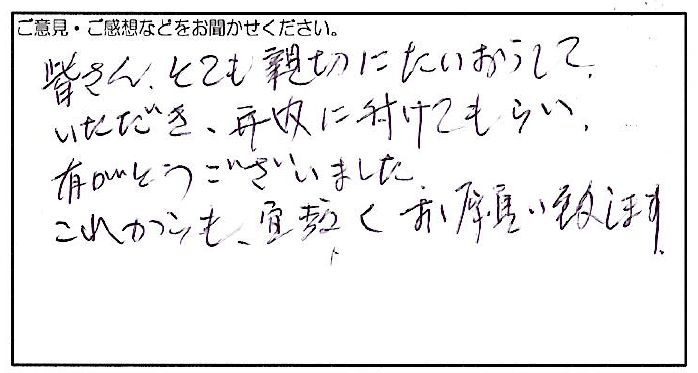 ご意見・ご感想などをお聞かせください。
皆さん、とても親切にたいおうして、
いただき、再収に付けてもらい、
有がとうございました。
これからも、宜敷くお願い致します。